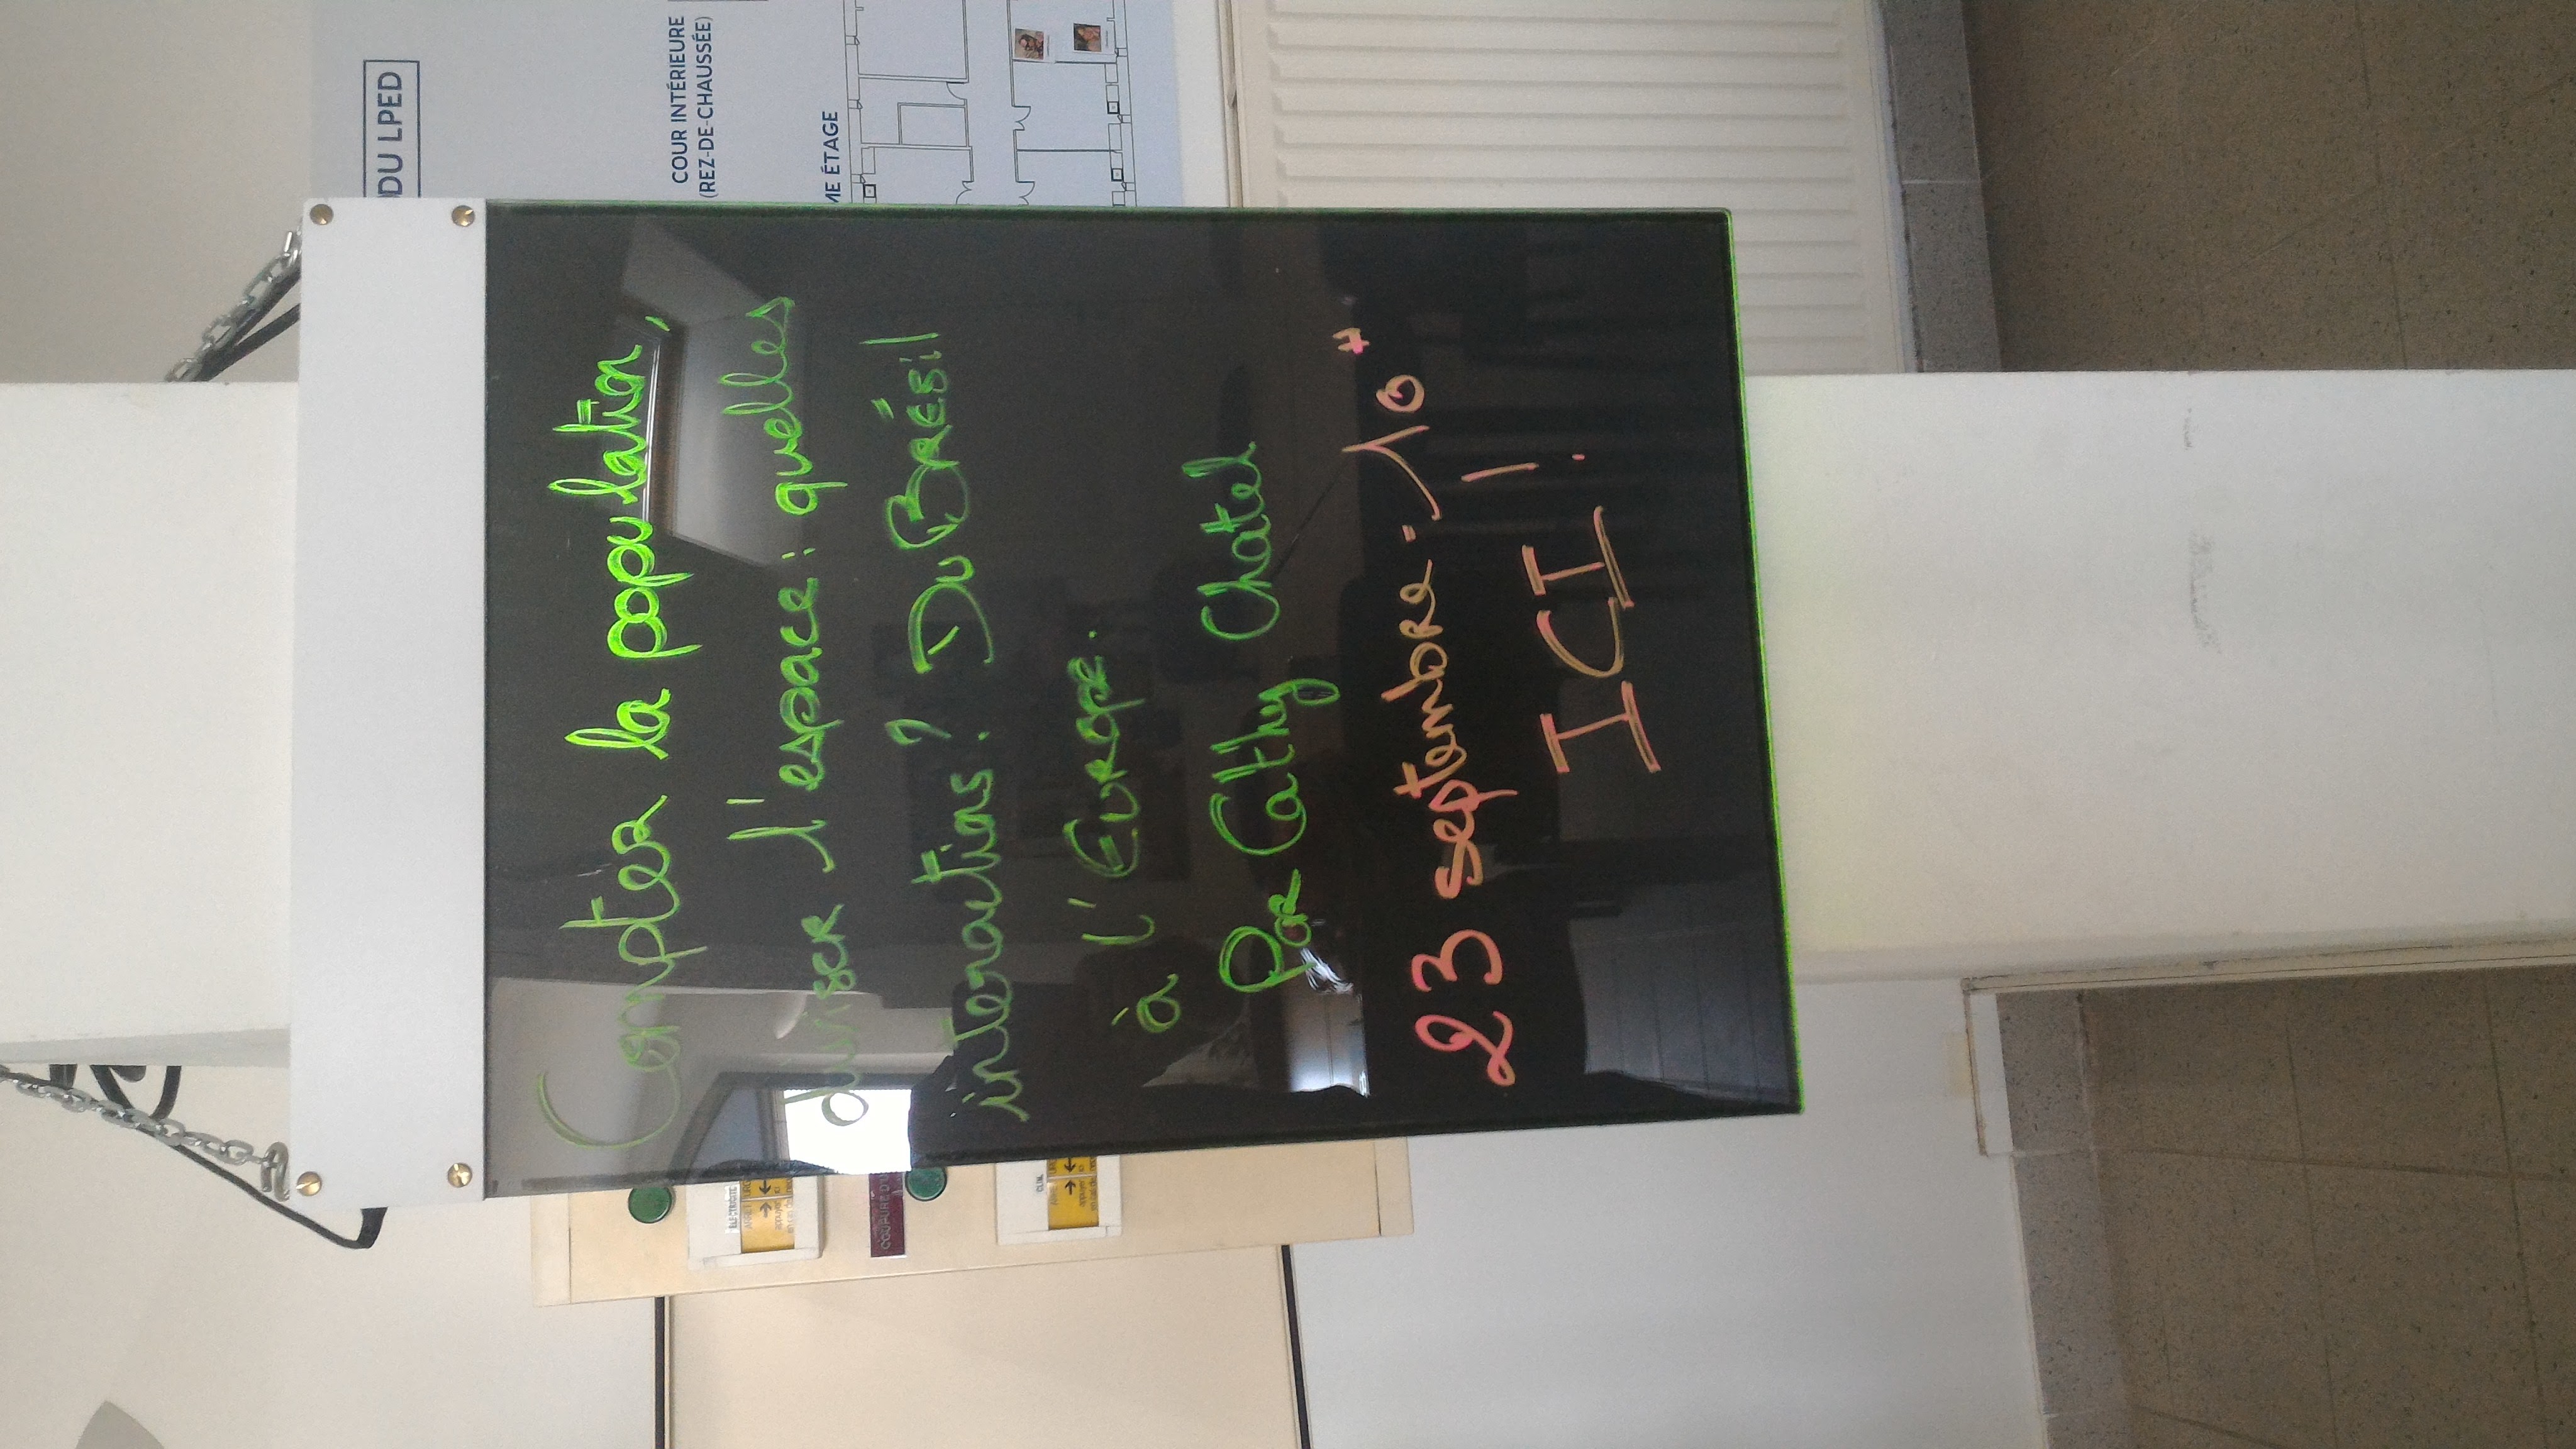 DU LPED
COUR INTÉRIEURE
(REZ-DE-CHAUSSÉE)
ME ÉTAGE
Compter la population,
diviser l'espace : quelles
interactions ? Du BRÉSIL
à l'EUROPE.
Par Cathy Chatel
23 septembre - 10H
ICI !
ARRET
COUPURE D'U
CLIM
ARRET